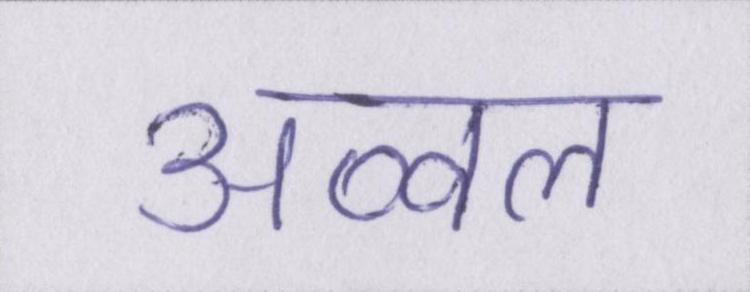 अव्वल